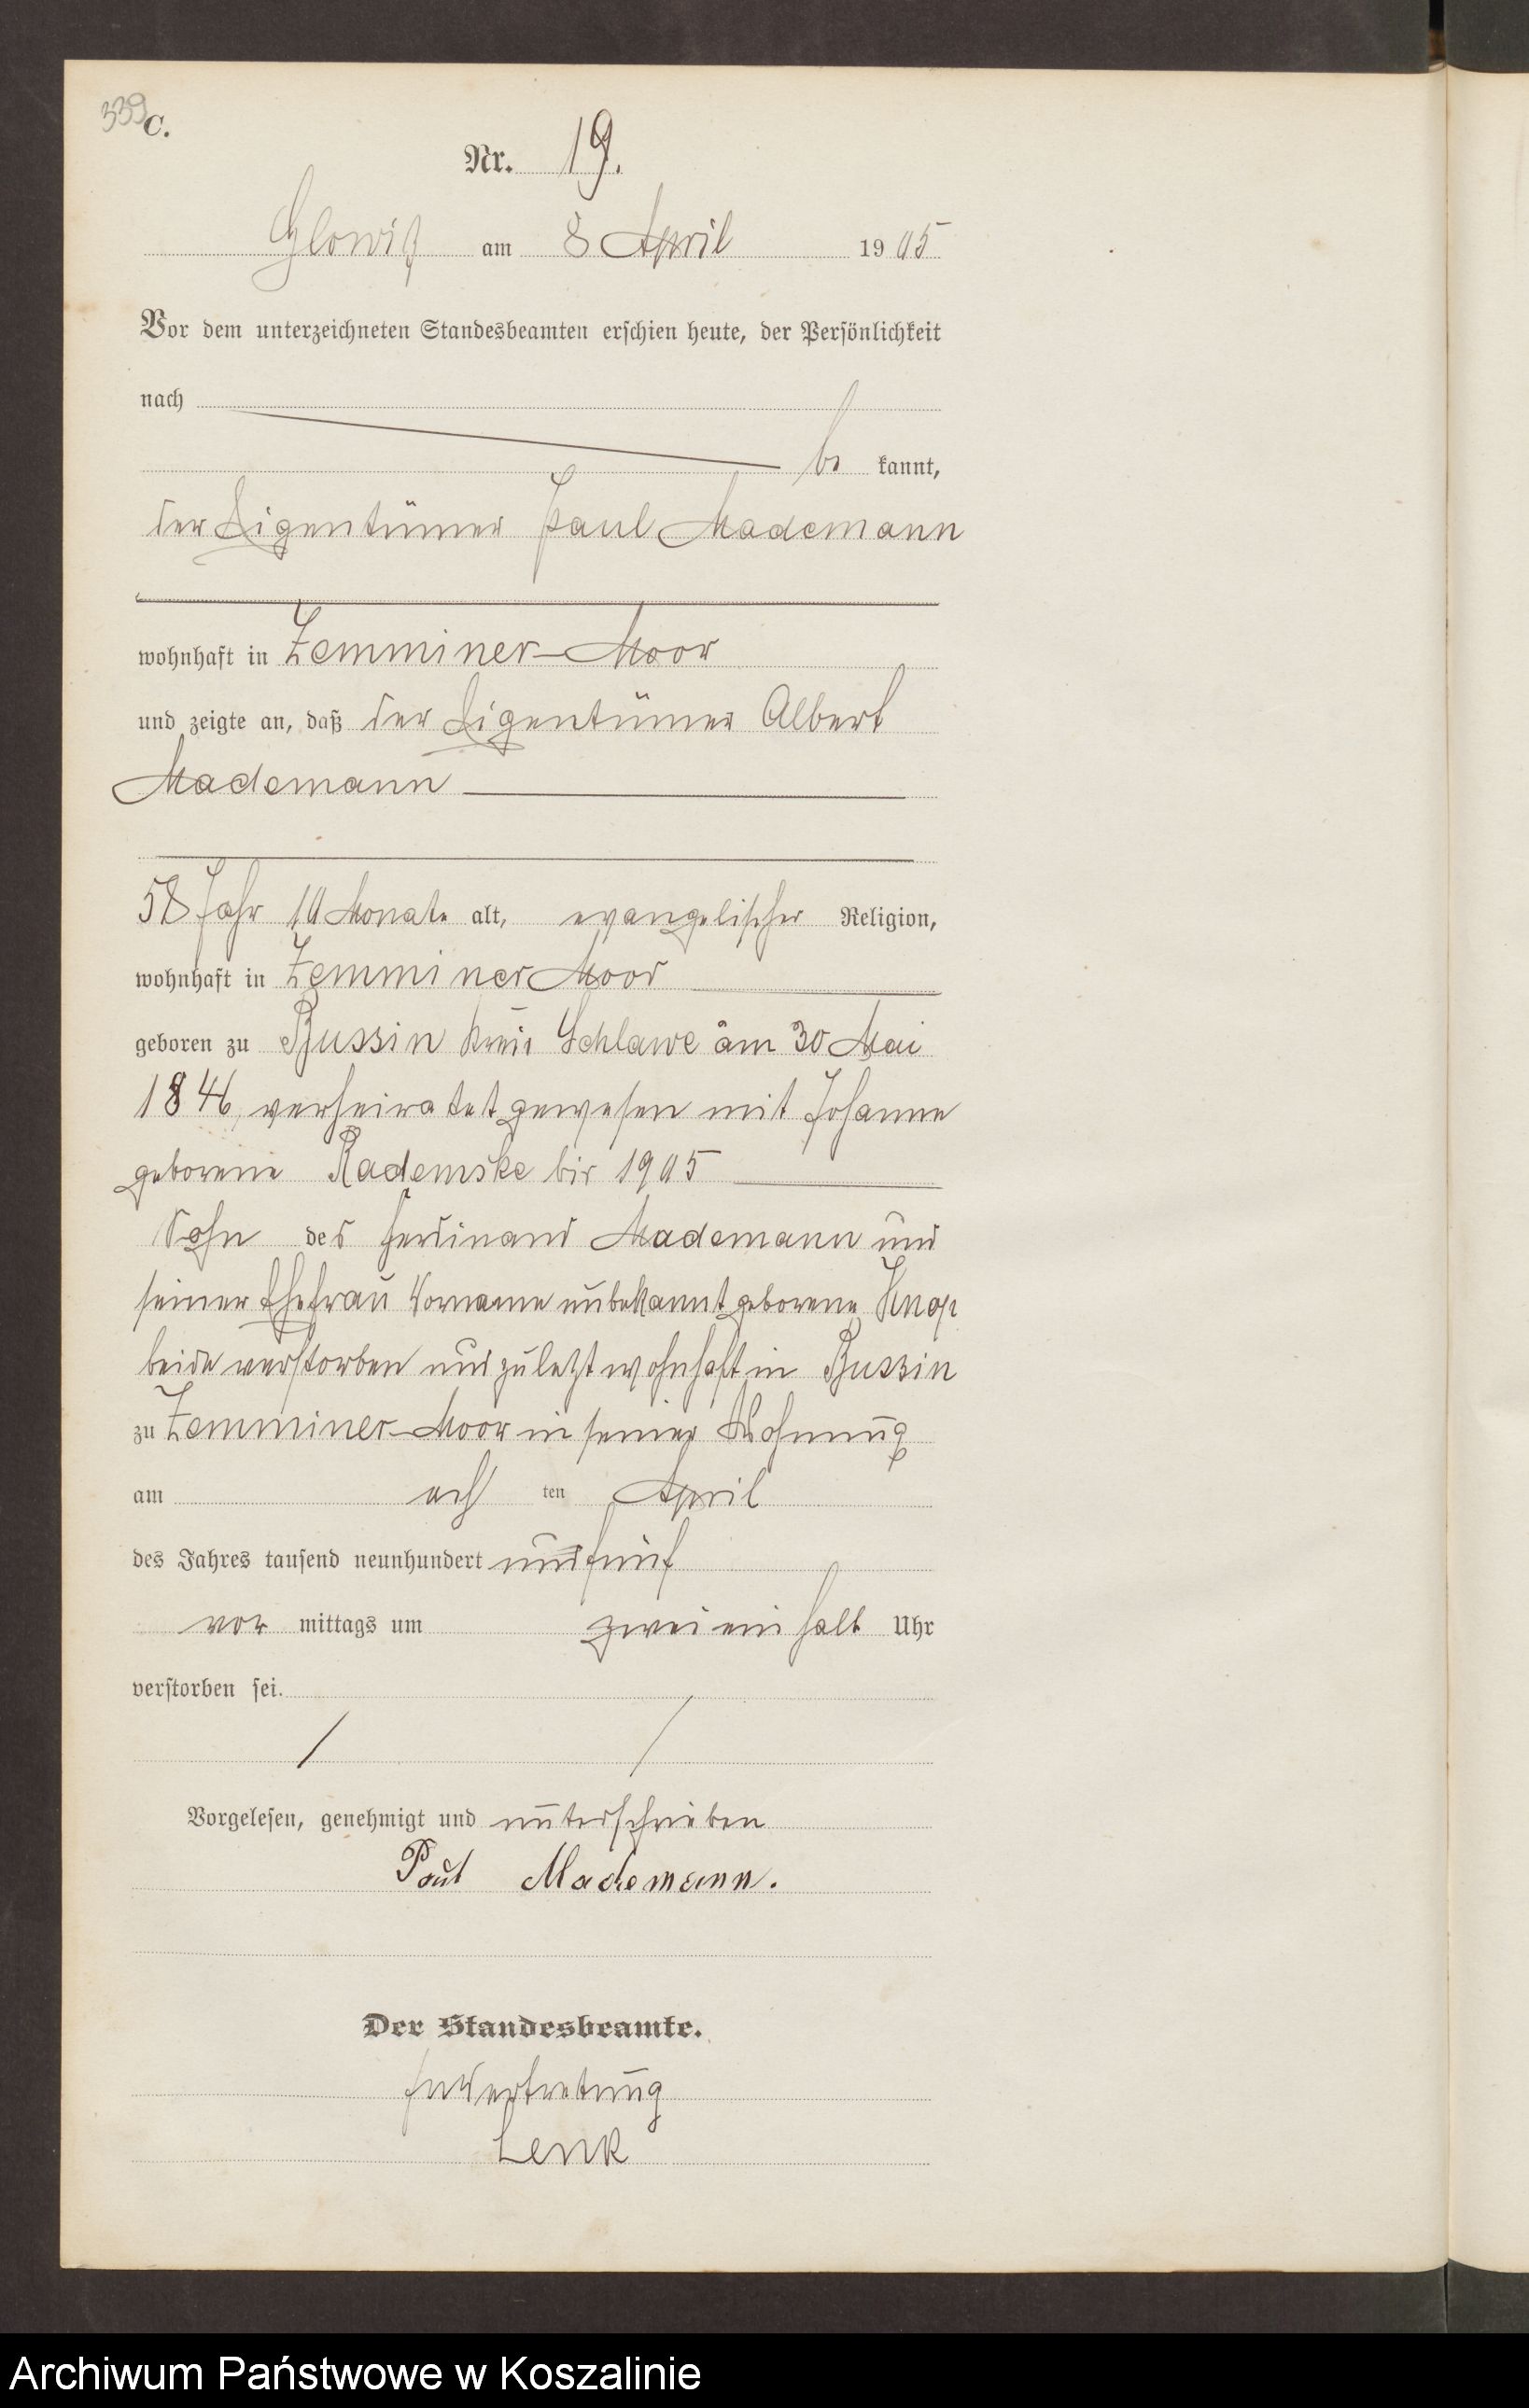 339
C.
Nr. 19.
Glowitz am 8 April 1905
Vor dem unterzeichneten Standesbeamten erschien heute, der Persönlichkeit
nach
be kannt,
der Eigentümer Paul Mademann
wohnhaft in Zemminer-Moor
und zeigte an, daß der Eigentümer Albert
Mademann
58 Jahr 10 Monate alt, evangelischer Religion,
wohnhaft in Zemminer Moor
geboren zu Bussin Kreis Schlawe am 30 Mai
1846, verheiratet gewesen mit Johanne
geborene Rademske bis 1905
Sohn des Ferdinand Mademann und
seiner Ehefrau Vorname unbekannt geborene Knop
beide verstorben und zuletzt wohnhaft in Bussin
zu Zemminer-Moor in seiner Wohnung
am acht ten April
des Jahres tausend neunhundert und fünf
vor mittags um zwei ein halb Uhr
verstorben sei.
Vorgelesen, genehmigt und unterschrieben
Paul Mademann.
Der Standesbeamte.
In Vertretung
Lenk
Archiwum Państwowe w Koszalinie